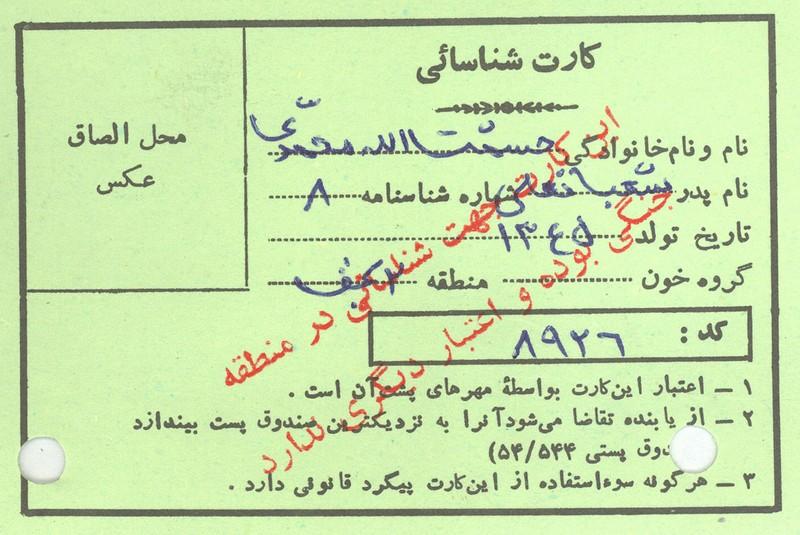 کارت شناسائی
محل الصاق
عکس
نام و نام‌خانوادگی حشمت الله محمدی
نام پدر شعبانعلی شماره شناسنامه ۸
تاریخ تولد ۱۳۴۵
گروه خون منطقه
کد : ۸۹۲۶
۱ ــ اعتبار این‌کارت بواسطهٔ مهرهای پشت‌آن است .
۲ ــ از یابنده تقاضا می‌شودآنرا به نزدیکترین صندوق پست بیندازد
دوق پستی ۵۴/۵۴۴)
۳ ــ هرگونه سوءاستفاده از این‌کارت پیگرد قانونی دارد .
این کارت جهت شناسائی در منطقه
جنگی بوده و اعتبار دیگری ندارد